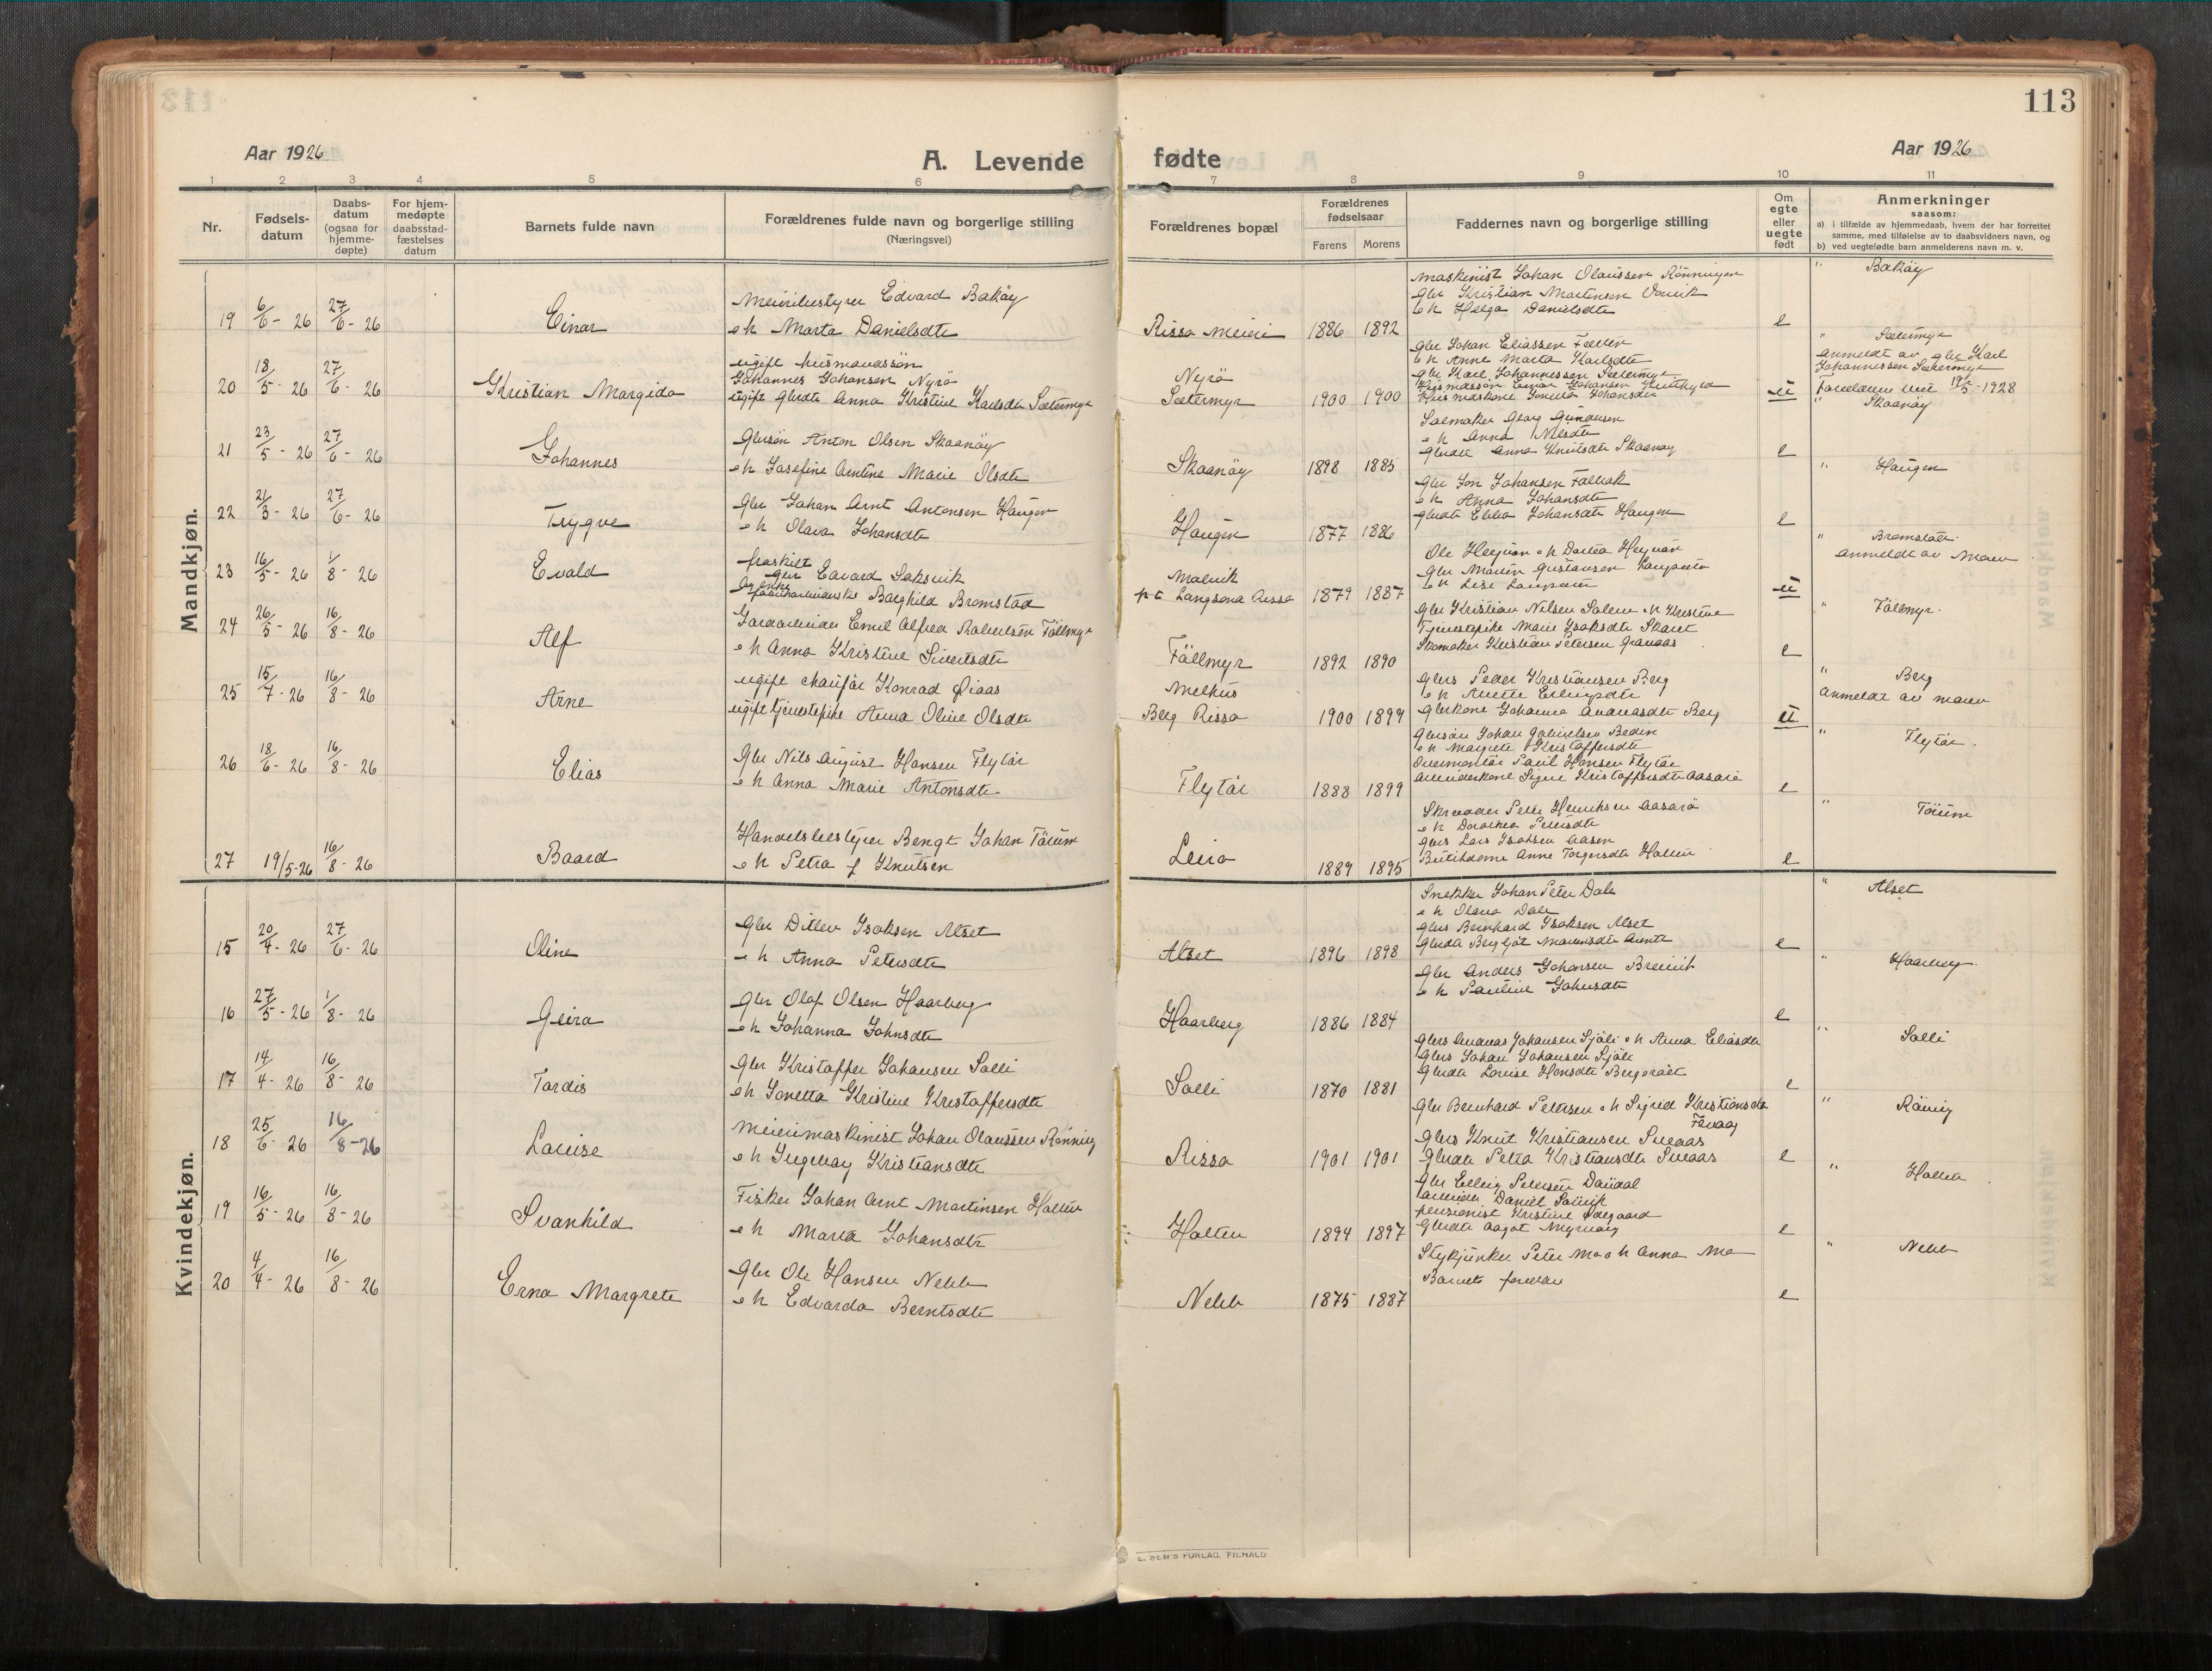 113
Aar 1926
A. Levende fødte
Aar 1926
1 2 3 4 5 6 7 8 9 10 11
Nr.
Fødsels-
datum
Daabs-
datum
(ogsaa for
hjemme-
døpte)
For hjem-
medøpte
daabsstad-
fæstelses
datum
Barnets fulde navn
Forældrenes fulde navn og borgerlige stilling
(Næringsvei)
Forældrenes bopæl
Forældrenes
fødselsaar
Farens Morens
Faddernes navn og borgerlige stilling
Om
egte
eller
uegte
født
Anmerkninger
saasom:
a) i tilfælde av hjemmedaab, hvem der har forrettet
samme, med tilføielse av to daabsvidners navn, og
b) ved uegtefødte barn anmelderens navn m. v.
Mandkjøn.
19 6/6-26 27/6-26 Einar
Meieribestyrer Edvard Bakøy
o h Marta Danielsdtr
Rissa Meieri 1886 1892
Maskinist Johan Olaussen Rönningen
Gbr Kristian Martensen
o h Helga Danielsdtr
e
" Bakøy
20 18/5-26 27/6-26 Kristian Margido
ugift husmandssøn
Johannes Johansen Nyrö
ugift Gbrdtr Anna Kristine Karlsdtr Sætermyr
Nyrö
Sætermyr 1900 1900
Gbr Johan Eliassen
o h Anne Marta Karlsdtr
Gbr Karl Johannessen Sætermyr
Husmandssøn Einar Johansen
Husmandskone Johansdtr
u
" Sætermyr
Anmeldt av gbr Karl
Johannessen Sætermyr
Forældrene viet 19/5-1928
21 23/5-26 27/6-26 Johannes
Gbrsön Anton Olsen Skaanöy
o h Josefine Arntine Marie Olsdtr
Skaanöy 1898 1885
Salmaker Georg Gundersen
o h Anna Nilsdtr
Gbrdtr Anna Knutsdtr Skaanöy
e
" Skaanöy
22 21/3-26 27/6-26 Trygve
Gbr Johan Arnt Antonsen Haugen
o h Olava Johansdtr
Haugen 1877 1886
Gbr Jon Johansen
o h Anna Johansdtr
Gbrdtr Ebba Johansdtr Haugen
e
" Haugen
23 16/5-26 1/8-26 Evald
fraskilt
gbr Edvard Saksvik
Borghild Bromstad
Malvik
p t Langsand Rissa 1879 1887
Ole o h Dortea
Gbr Martin Gustavsen
o h Lise
u
" Bromstad
Anmeldt av Moren
24 26/5-26 16/8-26 Alf
Gaardarbeider Emil Alfred Robertsen Fällmyr
o h Anna Kristine Sivertsdtr
Fällmyr 1892 1890
Gbr Kristian Nilsen Solem o h Kristine
Tjenestepike Marie Isaksdtr Skaret
Skomaker Kristian Petersen Granaas
e
" Fällmyr
25 15/7-26 16/8-26 Arne
ugift chaufør Konrad Øiaas
ugift tjenestepike Anna Oline Olsdtr
Melhus
Berg Rissa 1900 1899
Gbrs Peder Kristiansen Berg
o h Anette Ellingsdtr
Gbrkone Johanna Andreasdtr Berg
u
" Berg
Anmeldt av moren
26 18/6-26 16/8-26 Elias
Gbr Nils August Hansen Flytår
o h Anna Marie Antonsdtr
Flytår 1888 1899
Gbrsön Johan Gabrielsen
o h Margrete Kristoffersdtr
Overmontör Paul Hansen Flytår
Arbeiderkone Signe Kristoffersdtr
e
" Flytår
27 19/5-26 16/8-26 Baard
Handelsbestyrer Bengt Johan Tårum
o h Petra f Knutsen
Leira 1889 1895
Skrædder Peter Henriksen
o h Dorothea Petersdtr
Gbrs Lars Isaksen Aasen
Butikdame Anne Torgersdtr Holten
e
" Tårum
Kvindekjøn.
15 20/4-26 27/6-26 Oline
Gbr Ditlev Isaksen Alset
o h Anna Petersdtr
Alset 1896 1898
Snekker Johan Peter Dale
o h Olava Dale
Gbrs Bernhard Isaksen Alset
Gbrdtr Bergljot
e
" Alset
16 27/5-26 1/8-26 Geira
Gbr Olaf Olsen Haarberg
o h Johanna Johnsdtr
Haarberg 1886 1884
Gbr Anders Johansen Brenvik
o h Pauline Johnsdtr
e
" Haarberg
17 14/4-26 16/8-26 Tordis
Gbr Kristoffer Johansen Solli
o h Jonetta Kristine Kristoffersdtr
Solli 1870 1881
Gbrs Andreas Johansen Sjöli o h Anna Eliasdtr
Gbrs Johan Johansen Sjöli
Gbrdtr Louise Hansdtr
e
" Solli
18 25/6-26 16/8-26 Louise
Meierimaskinist Johan Olaussen Rönning
o h Ingebay Kristiansdtr
Rissa 1901 1901
Gbr Bernhard Petersen o h Sigrid Kristiansdtr
Gbrs Knut Kristiansen Sveaas
Gbrdtr Petra Kristiansdtr Sveaas
e
" Rönnig
19 16/5-26 16/8-26 Svanhild
Fisker Johan Arnt Martinsen Holten
o h Marta Johansdtr
Holten 1894 1897
Gbr Elling Petersen
arbeider Daniel
pensionist Kristine Ødegaard
Gbrdtr Aagot
e
" Holten
20 4/4-26 16/8-26 Erna Margrete
Gbr Ole Hansen Nebb
o h Edvarda Berntsdtr
Nebb 1875 1887
Stykjunker Peter Moe o h Anna Moe
Barnets forældre
e
" Nebb
E. SEM'S FORLAG, FR.HALD